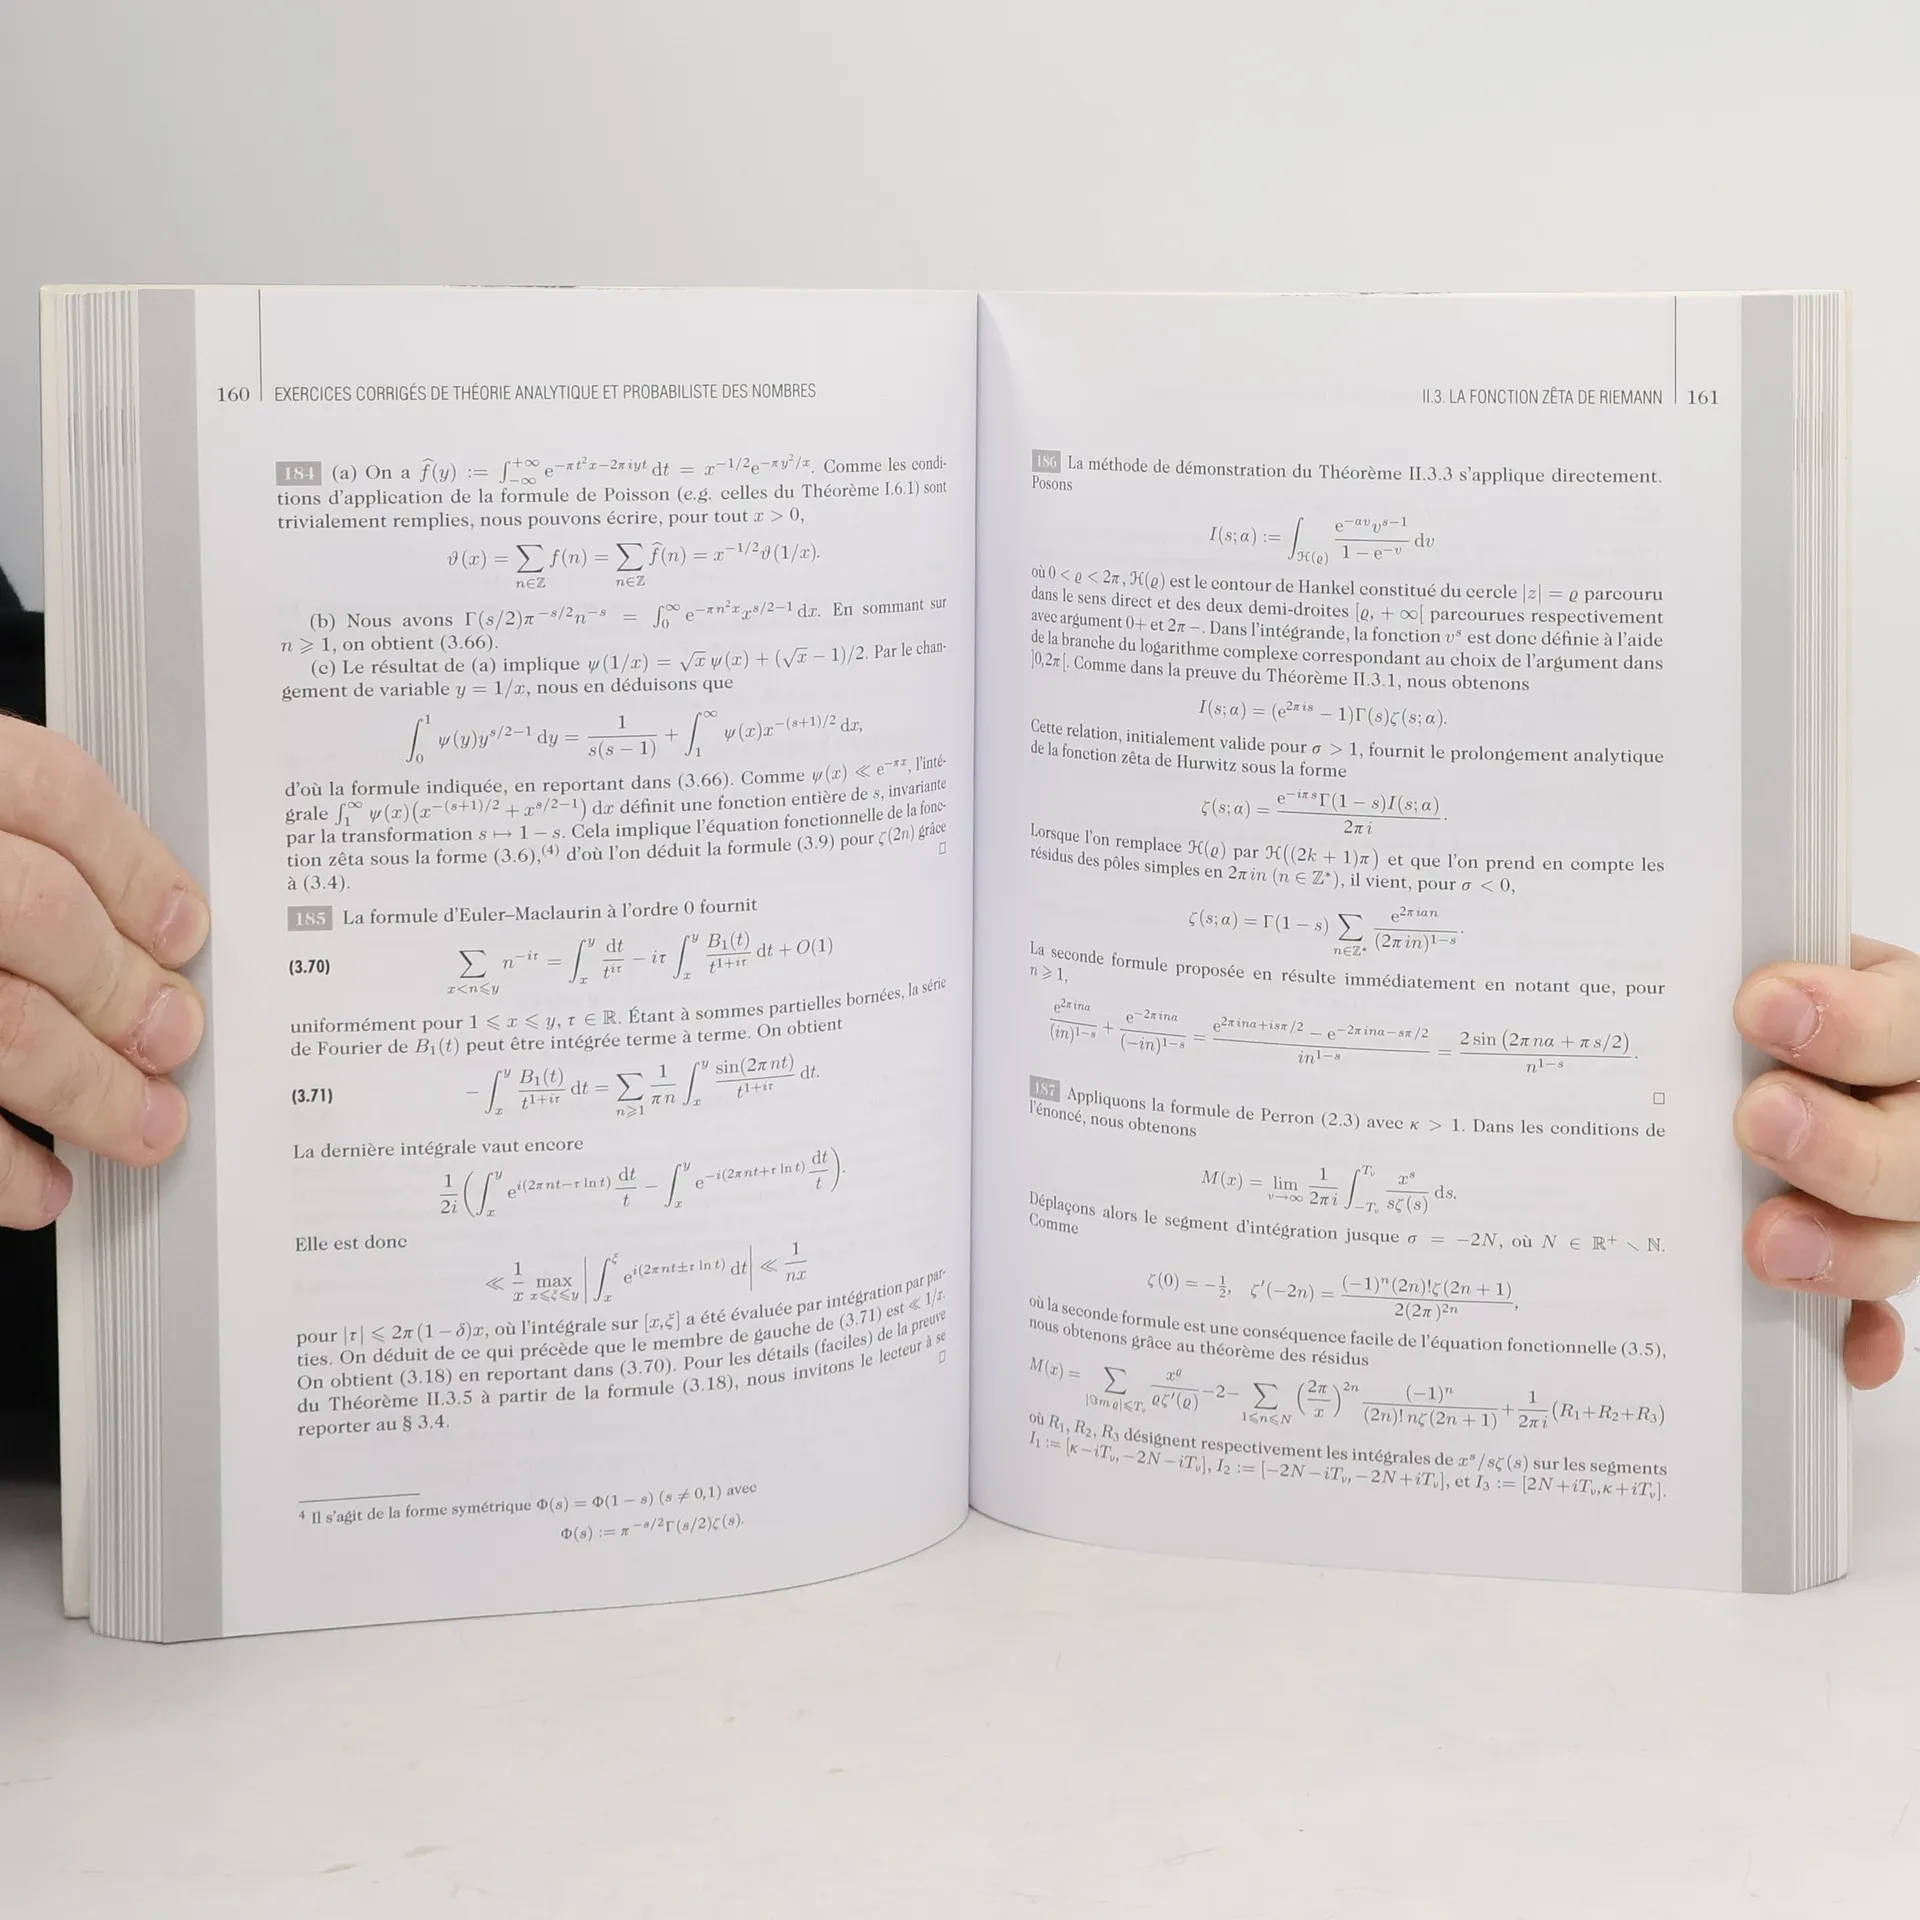 160 EXERCICES CORRIGÉS DE THÉORIE ANALYTIQUE ET PROBABILISTE DES NOMBRES
184 (a) On a f̂(y) := ∫_{−∞}^{+∞} e^{−πt²x−2πiyt} dt = x^{−1/2}e^{−πy²/x}. Comme les condi-
tions d'application de la formule de Poisson (e.g. celles du Théorème I.6.1) sont
trivialement remplies, nous pouvons écrire, pour tout x > 0,
ϑ(x) = ∑_{n∈ℤ} f(n) = ∑_{n∈ℤ} f̂(n) = x^{−1/2}ϑ(1/x).
(b) Nous avons Γ(s/2)π^{−s/2}n^{−s} = ∫_0^∞ e^{−πn²x}x^{s/2−1} dx. En sommant sur
n ⩾ 1, on obtient (3.66).
(c) Le résultat de (a) implique ψ(1/x) = √x ψ(x) + (√x − 1)/2. Par le chan-
gement de variable y = 1/x, nous en déduisons que
∫_0^1 ψ(y)y^{s/2−1} dy = 1/(s(s − 1)) + ∫_1^∞ ψ(x)x^{−(s+1)/2} dx,
d'où la formule indiquée, en reportant dans (3.66). Comme ψ(x) ≪ e^{−πx}, l'inté-
grale ∫_1^∞ ψ(x)(x^{−(s+1)/2} + x^{s/2−1}) dx définit une fonction entière de s, invariante
par la transformation s ↦ 1 − s. Cela implique l'équation fonctionnelle de la fonc-
tion zêta sous la forme (3.6),⁽⁴⁾ d'où l'on déduit la formule (3.9) pour ζ(2n) grâce
à (3.4). □
185 La formule d'Euler–Maclaurin à l'ordre 0 fournit
(3.70) ∑_{x<n⩽y} n^{−iτ} = ∫_x^y dt/t^{iτ} − iτ ∫_x^y B₁(t)/t^{1+iτ} dt + O(1)
uniformément pour 1 ⩽ x ⩽ y, τ ∈ ℝ. Étant à sommes partielles bornées, la série
de Fourier de B₁(t) peut être intégrée terme à terme. On obtient
(3.71) − ∫_x^y B₁(t)/t^{1+iτ} dt = ∑_{n⩾1} 1/(πn) ∫_x^y sin(2πnt)/t^{1+iτ} dt.
La dernière intégrale vaut encore
1/(2i) (∫_x^y e^{i(2πnt−τ ln t)} dt/t − ∫_x^y e^{−i(2πnt+τ ln t)} dt/t).
Elle est donc
≪ 1/x max_{x⩽ξ⩽y} |∫_x^ξ e^{i(2πnt±τ ln t)} dt| ≪ 1/(nx)
pour |τ| ⩽ 2π(1 − δ)x, où l'intégrale sur [x,ξ] a été évaluée par intégration par par-
ties. On déduit de ce qui précède que le membre de gauche de (3.71) est ≪ 1/x.
On obtient (3.18) en reportant dans (3.70). Pour les détails (faciles) de la preuve
du Théorème II.3.5 à partir de la formule (3.18), nous invitons le lecteur à se
reporter au § 3.4. □
⁴ Il s'agit de la forme symétrique Φ(s) = Φ(1 − s) (s ≠ 0,1) avec
Φ(s) := π^{−s/2}Γ(s/2)ζ(s).
II.3. LA FONCTION ZÊTA DE RIEMANN 161
186 La méthode de démonstration du Théorème II.3.3 s'applique directement.
Posons
I(s;α) := ∫_{ℋ(ϱ)} e^{−αv}v^{s−1}/(1 − e^{−v}) dv
où 0 < ϱ < 2π, ℋ(ϱ) est le contour de Hankel constitué du cercle |z| = ϱ parcouru
dans le sens direct et des deux demi-droites [ϱ, + ∞[ parcourues respectivement
avec argument 0+ et 2π −. Dans l'intégrande, la fonction v^s est donc définie à l'aide
de la branche du logarithme complexe correspondant au choix de l'argument dans
]0,2π[. Comme dans la preuve du Théorème II.3.1, nous obtenons
I(s;α) = (e^{2πis} − 1)Γ(s)ζ(s;α).
Cette relation, initialement valide pour σ > 1, fournit le prolongement analytique
de la fonction zêta de Hurwitz sous la forme
ζ(s;α) = e^{−iπs}Γ(1 − s)I(s;α)/(2πi).
Lorsque l'on remplace ℋ(ϱ) par ℋ((2k + 1)π) et que l'on prend en compte les
résidus des pôles simples en 2πin (n ∈ ℤ*), il vient, pour σ < 0,
ζ(s;α) = Γ(1 − s) ∑_{n∈ℤ*} e^{2πiαn}/(2πin)^{1−s}.
La seconde formule proposée en résulte immédiatement en notant que, pour
n ⩾ 1,
e^{2πinα}/(in)^{1−s} + e^{−2πinα}/(−in)^{1−s} = (e^{2πinα+isπ/2} − e^{−2πinα−sπ/2})/(in^{1−s}) = 2 sin (2πnα + πs/2)/n^{1−s}.
□
187 Appliquons la formule de Perron (2.3) avec κ > 1. Dans les conditions de
l'énoncé, nous obtenons
M(x) = lim_{ν→∞} 1/(2πi) ∫_{−T_ν}^{T_ν} x^s/(sζ(s)) ds.
Déplaçons alors le segment d'intégration jusque σ = −2N, où N ∈ ℝ⁺ ∖ ℕ.
Comme
ζ(0) = −½, ζ′(−2n) = (−1)^n(2n)!ζ(2n + 1)/(2(2π)^{2n}),
où la seconde formule est une conséquence facile de l'équation fonctionnelle (3.5),
nous obtenons grâce au théorème des résidus
M(x) = ∑_{|ℑm ϱ|⩽T_ν} x^ϱ/(ϱζ′(ϱ)) −2− ∑_{1⩽n⩽N} (2π/x)^{2n} (−1)^n/((2n)! nζ(2n + 1)) + 1/(2πi) (R₁+R₂+R₃)
où R₁, R₂, R₃ désignent respectivement les intégrales de x^s/sζ(s) sur les segments
I₁ := [κ−iT_ν, −2N−iT_ν], I₂ := [−2N−iT_ν, −2N+iT_ν], et I₃ := [2N+iT_ν,κ+iT_ν].